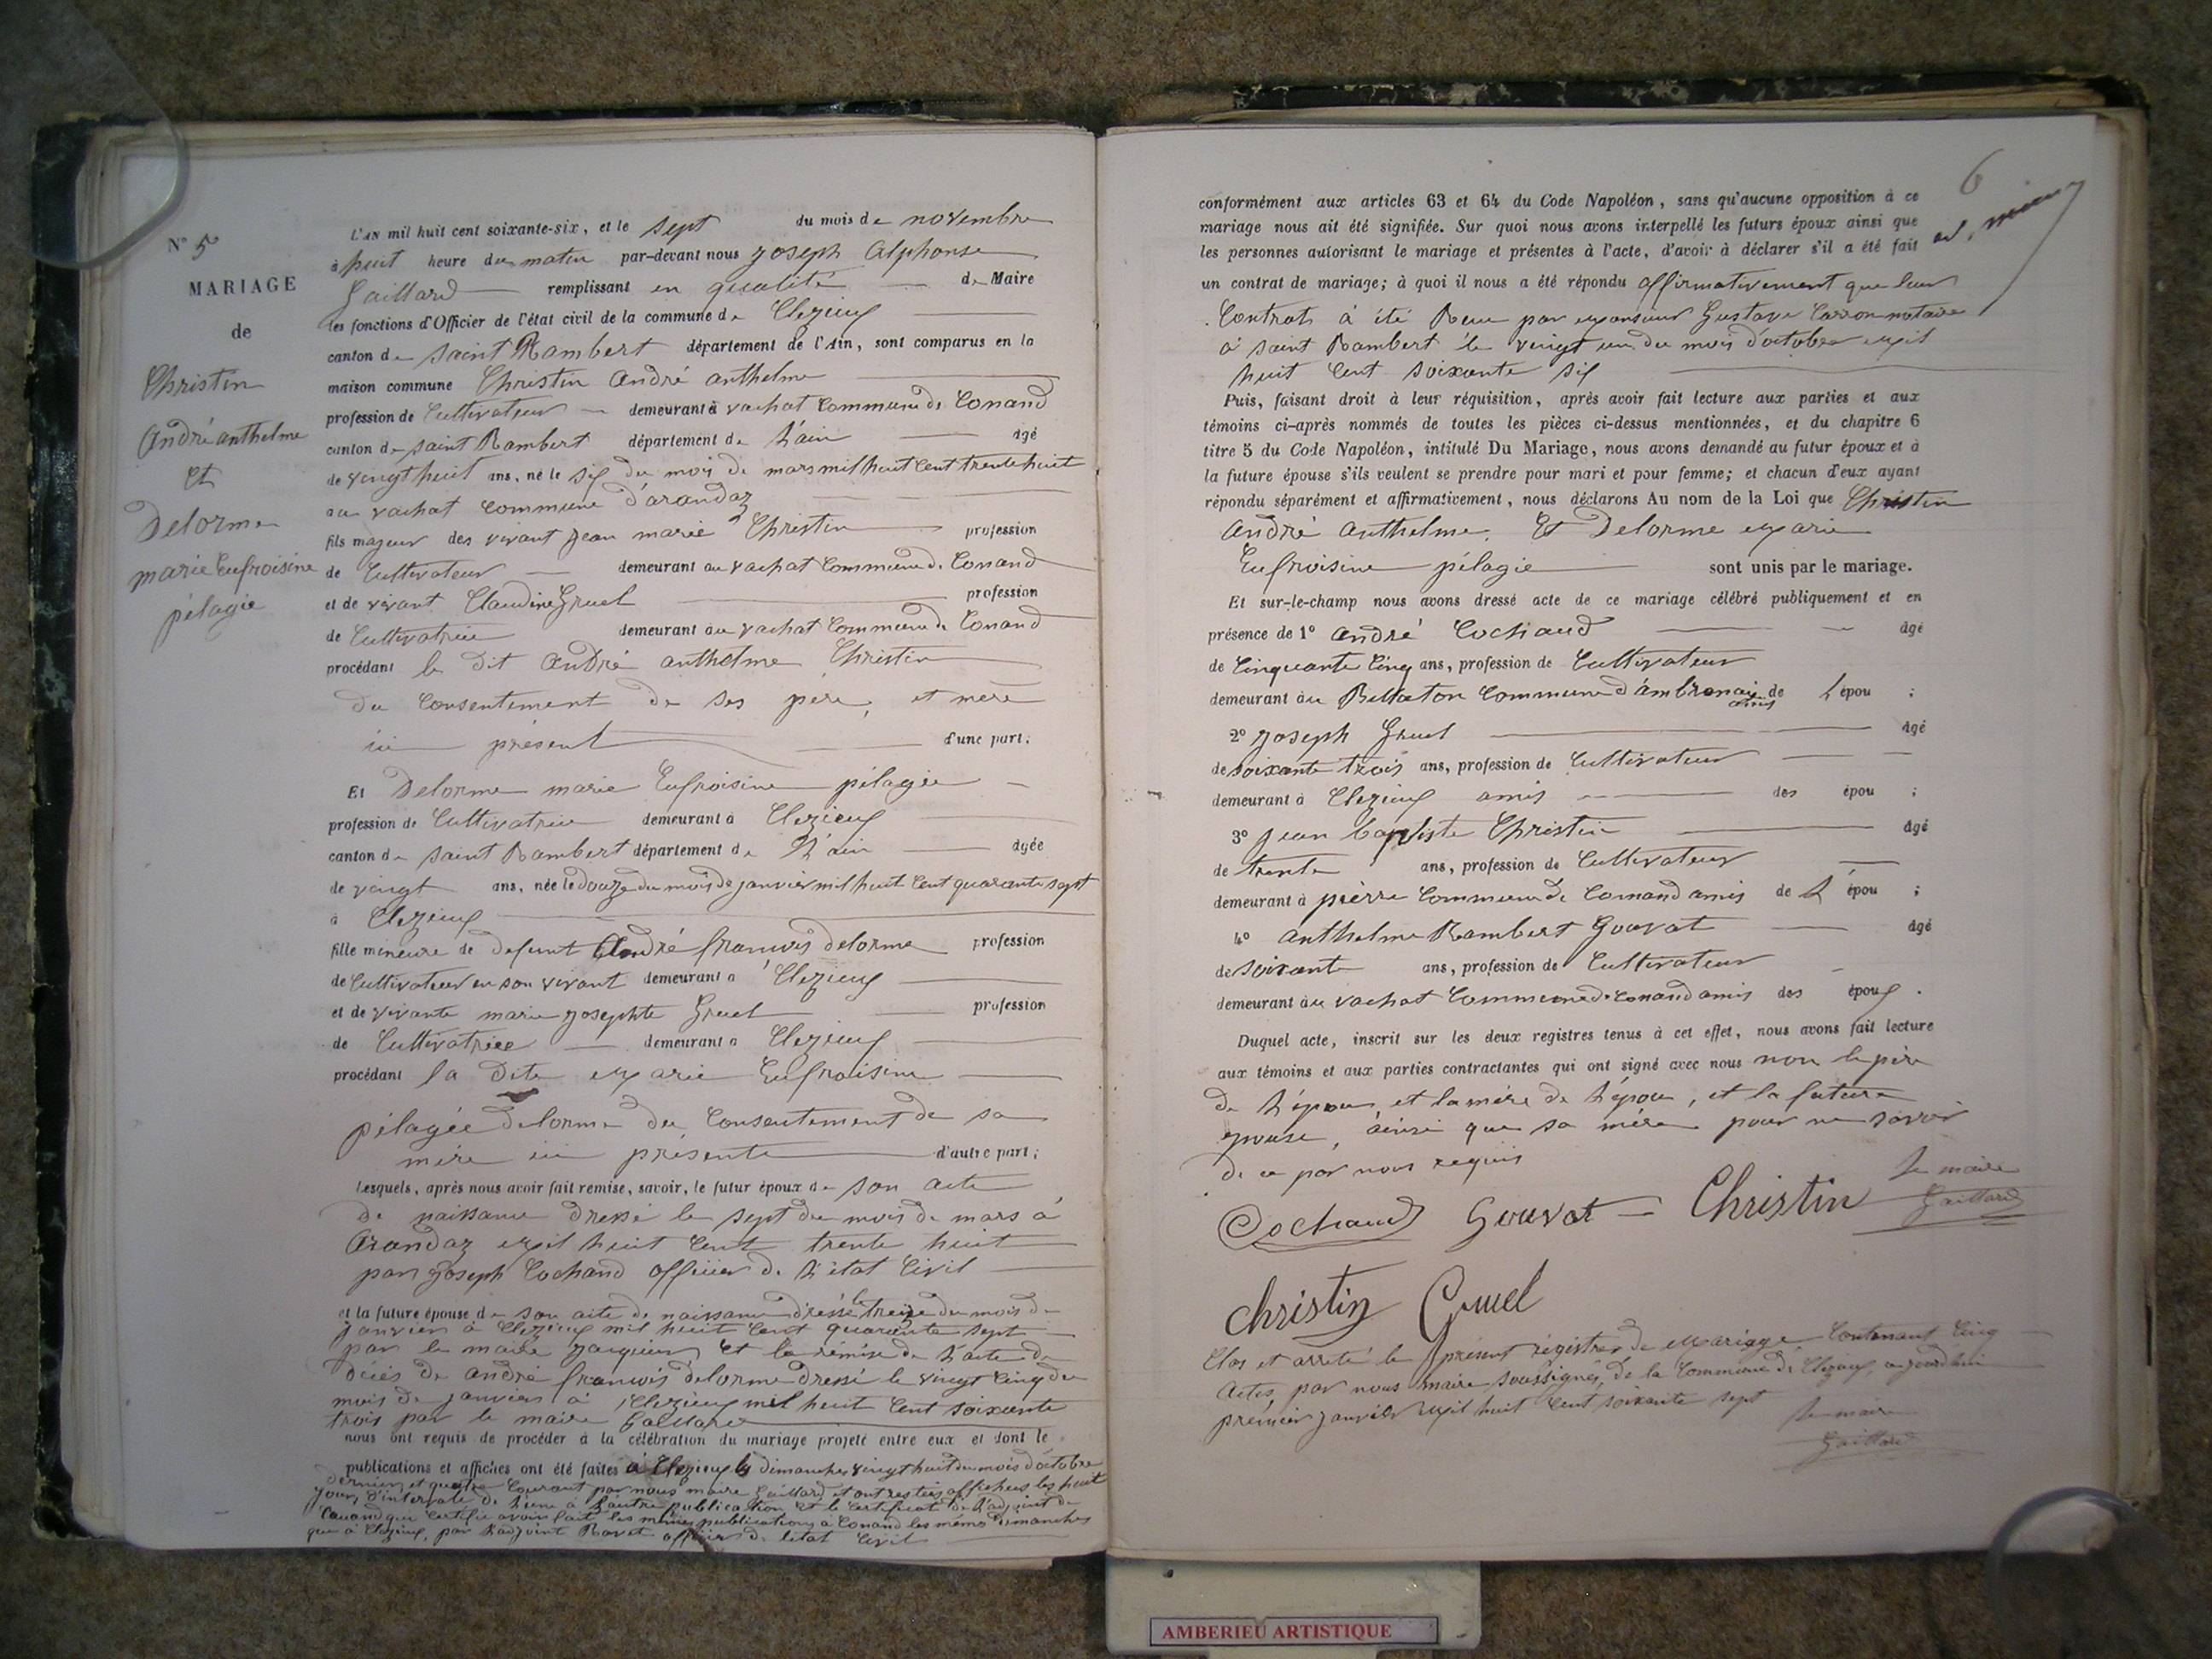 N° 5
MARIAGE
de
Christin
André anthelme
Et
Delorme
marie Eufroisine
pélagie
L'AN mil huit cent soixante-six, et le sept du mois de novembre
à huit heure du matin par-devant nous Joseph Alphonse
Gaillard remplissant en qualité de Maire
les fonctions d'Officier de l'état civil de la commune de Cleyzieux
canton de saint Rambert département de l'Ain, sont comparus en la
maison commune Christin André anthelme
profession de Cultivateur demeurant à vachat Commune de Conand
canton de saint Rambert département de L'ain âgé
de vingt huit ans, né le six du mois de mars mil huit Cent trente huit
au vachat commune d'arandaz
fils majeur des vivant Jean marie Christin profession
de Cultivateur demeurant au vachat Commune de Conand
et de vivant Claudine Gruel profession
de Cultivatrice demeurant au vachat Commune de Conand
procédant le dit André anthelme Christin
du Consentement de ses père, et mère
ici présent d'une part;
Et Delorme marie Eufroisine pélagie
profession de Cultivatrice demeurant à Cleyzieux
canton de saint Rambert département de L'ain âgée
de vingt ans, née le douze du mois de janvier mil huit Cent quarante sept
à Cleyzieux
fille mineure de defunt André françois delorme profession
de Cultivateur en son vivant demeurant à Cleyzieux
et de vivante marie josephte Gruel profession
de Cultivatrice demeurant à Cleyzieux
procédant la Dite Marie Eufroisine
pélagée delorme du Consentement de sa
mère ici présente d'autre part;
Lesquels, après nous avoir fait remise, savoir, le futur époux de son acte
de naissance dressé le sept du mois de mars à
Arandaz Mil huit Cent trente huit
par Joseph Cochand officier de L'état Civil
et la future épouse de son acte de naissance dressé le treize du mois de
janvier à Cleyzieux mil huit Cent quarante sept
par le maire et la rémise de L'acte de
décès de André françois delorme dressé le vingt Cinq du
mois de janvier à Cleyzieux mil huit Cent soixante
trois par le maire Gaillard
nous ont requis de procéder à la célébration du mariage projeté entre eux et dont le
publications et affiches ont été faites à Cleyzieux les dimanches vingt huit du mois d'octobre
dernier, et quatre Courant par nous maire Gaillard, et ont restés affichées les huit
jours d'intervale de L'une à L'autre publication et le Certificat de L'adjoint de
Conand qui Certifie avoir fait les mêmes publications à Conand les mêmes dimanches
que à Cleyzieux, par L'adjoint Ravet officier de létat Civil
6
conformément aux articles 63 et 64 du Code Napoléon, sans qu'aucune opposition à ce
mariage nous ait été signifiée. Sur quoi nous avons interpellé les futurs époux ainsi que
les personnes autorisant le mariage et présentes à l'acte, d'avoir à déclarer s'il a été fait
un contrat de mariage; à quoi il nous a été répondu affirmativement que leur
Contrat à été Reçu par Monsieur Gustave Carron notaire
à saint Rambert le vingt un du mois d'octobre Mil
huit Cent soixante six
Puis, faisant droit à leur réquisition, après avoir fait lecture aux parties et aux
témoins ci-après nommés de toutes les pièces ci-dessus mentionnées, et du chapitre 6
titre 5 du Code Napoléon, intitulé Du Mariage, nous avons demandé au futur époux et à
la future épouse s'ils veulent se prendre pour mari et pour femme; et chacun d'eux ayant
répondu séparément et affirmativement, nous déclarons Au nom de la Loi que Christin
André Anthelme. Et Delorme Marie
Eufroisine pélagie sont unis par le mariage.
Et sur-le-champ nous avons dressé acte de ce mariage célébré publiquement et en
présence de 1° André Cochand âgé
de Cinquante Cinq ans, profession de Cultivateur
demeurant au Bellaton Commune d'ambronai amis de L épou ;
2° Joseph Gruel âgé
de soixante trois ans, profession de Cultivateur
demeurant à Cleyzieux amis des épou ;
3° Jean baptiste Christin âgé
de trente ans, profession de Cultivateur
demeurant à pièrre Commune de Conand amis de L épou ;
4° Anthelme Rambert Gouvat âgé
de soixante ans, profession de Cultivateur
demeurant au vachat Commune de Conand amis des époux.
Duquel acte, inscrit sur les deux registres tenus à cet effet, nous avons fait lecture
aux témoins et aux parties contractantes qui ont signé avec nous non le père
de L'épou, et la mère de L'épou, et la future
epouse, ainsi que sa mère pour ne savoir
de ce par nous requis
Cochand Gouvat Christin le maire
Gaillard
Christin Gruel
Clos et arreté le présent régistre de Mariage Contenant Cinq
Actes, par nous maire soussigné, de la Commune de Cleyzieux, aujourdhui
prémier janvier Mil huit Cent soixante sept
le maire
Gaillard
AMBERIEU ARTISTIQUE